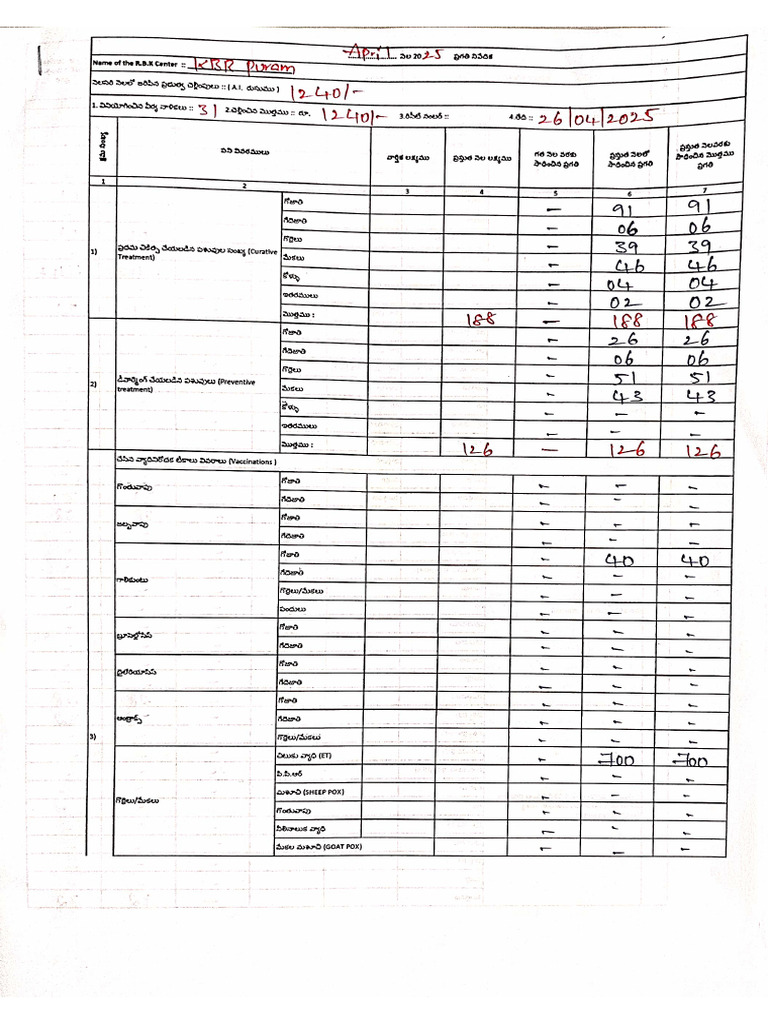 April నెల 2025 ప్రగతి నివేదిక
Name of the R.B.K Center :: KBR Puram
నెలసరి నెలలో జరిపిన ప్రభుత్వ చెల్లింపులు :: ( A.I. రుసుము ) 1240/-
1. వినియోగించిన వీర్య నాళికలు :: 31 2.చెల్లించిన మొత్తము :: రూ. 1240/- 3.రిసీట్ నంబర్ :: 4.తేది :: 26/04/2025
క్రమ సంఖ్య పని వివరములు వార్షిక లక్ష్యము ప్రస్తుత నెల లక్ష్యము గత నెల వరకు సాధించిన ప్రగతి ప్రస్తుత నెలలో సాధించిన ప్రగతి ప్రస్తుత నెలవరకు సాధించిన మొత్తము ప్రగతి
1 2 3 4 5 6 7
1) ప్రథమ చికిత్స చేయబడిన పశువుల సంఖ్య (Curative Treatment)
గోజాతి - 91 91
గేదెజాతి - 06 06
గొర్రెలు - 39 39
మేకలు - 46 46
కోళ్ళు - 04 04
ఇతరములు - 02 02
మొత్తము : 188 - 188 188
2) డీవార్మింగ్ చేయబడిన పశువులు (Preventive treatment)
గోజాతి - 26 26
గేదిజాతి - 06 06
గొర్రెలు - 51 51
మేకలు - 43 43
కోళ్ళు - - -
ఇతరములు - - -
మొత్తము : 126 - 126 126
3) చేసిన వ్యాధినిరోధక టీకాలు వివరాలు (Vaccinations )
గొంతువాపు
గోజాతి - - -
గేదిజాతి - - -
జబ్బవాపు
గోజాతి - - -
గేదిజాతి - - -
గాలికుంటు
గోజాతి - 40 40
గేదిజాతి - - -
గొర్రెలు/మేకలు - - -
పందులు - - -
బ్రూసెల్లోసిస్
గోజాతి - - -
గేదిజాతి - - -
థైలేరియాసిస్
గోజాతి - - -
గేదిజాతి - - -
ఆంత్రాక్స్
గోజాతి - - -
గేదిజాతి - - -
గొర్రెలు/మేకలు - - -
గొర్రెలు/మేకలు
చిటుకు వ్యాధి (ET) - 700 700
పి.పి.ఆర్ - - -
మశూచి (SHEEP POX) - - -
గొంతువాపు - - -
నీలినాలుక వ్యాధి - - -
మేకల మశూచి (GOAT POX) - - -